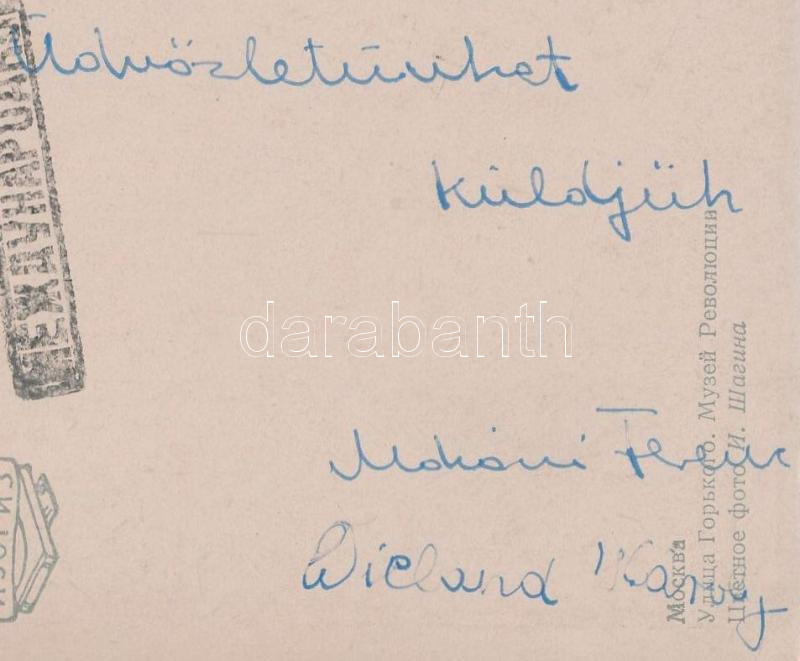 Üdvözletünket
küldjük
darabanth
Mohácsi Ferenc
Wieland Károly
Москва
Улица Горького. Музей Революции
Цветное фото И. Шагина
МЕЖДУНАРОД
ИЗОГИЗ